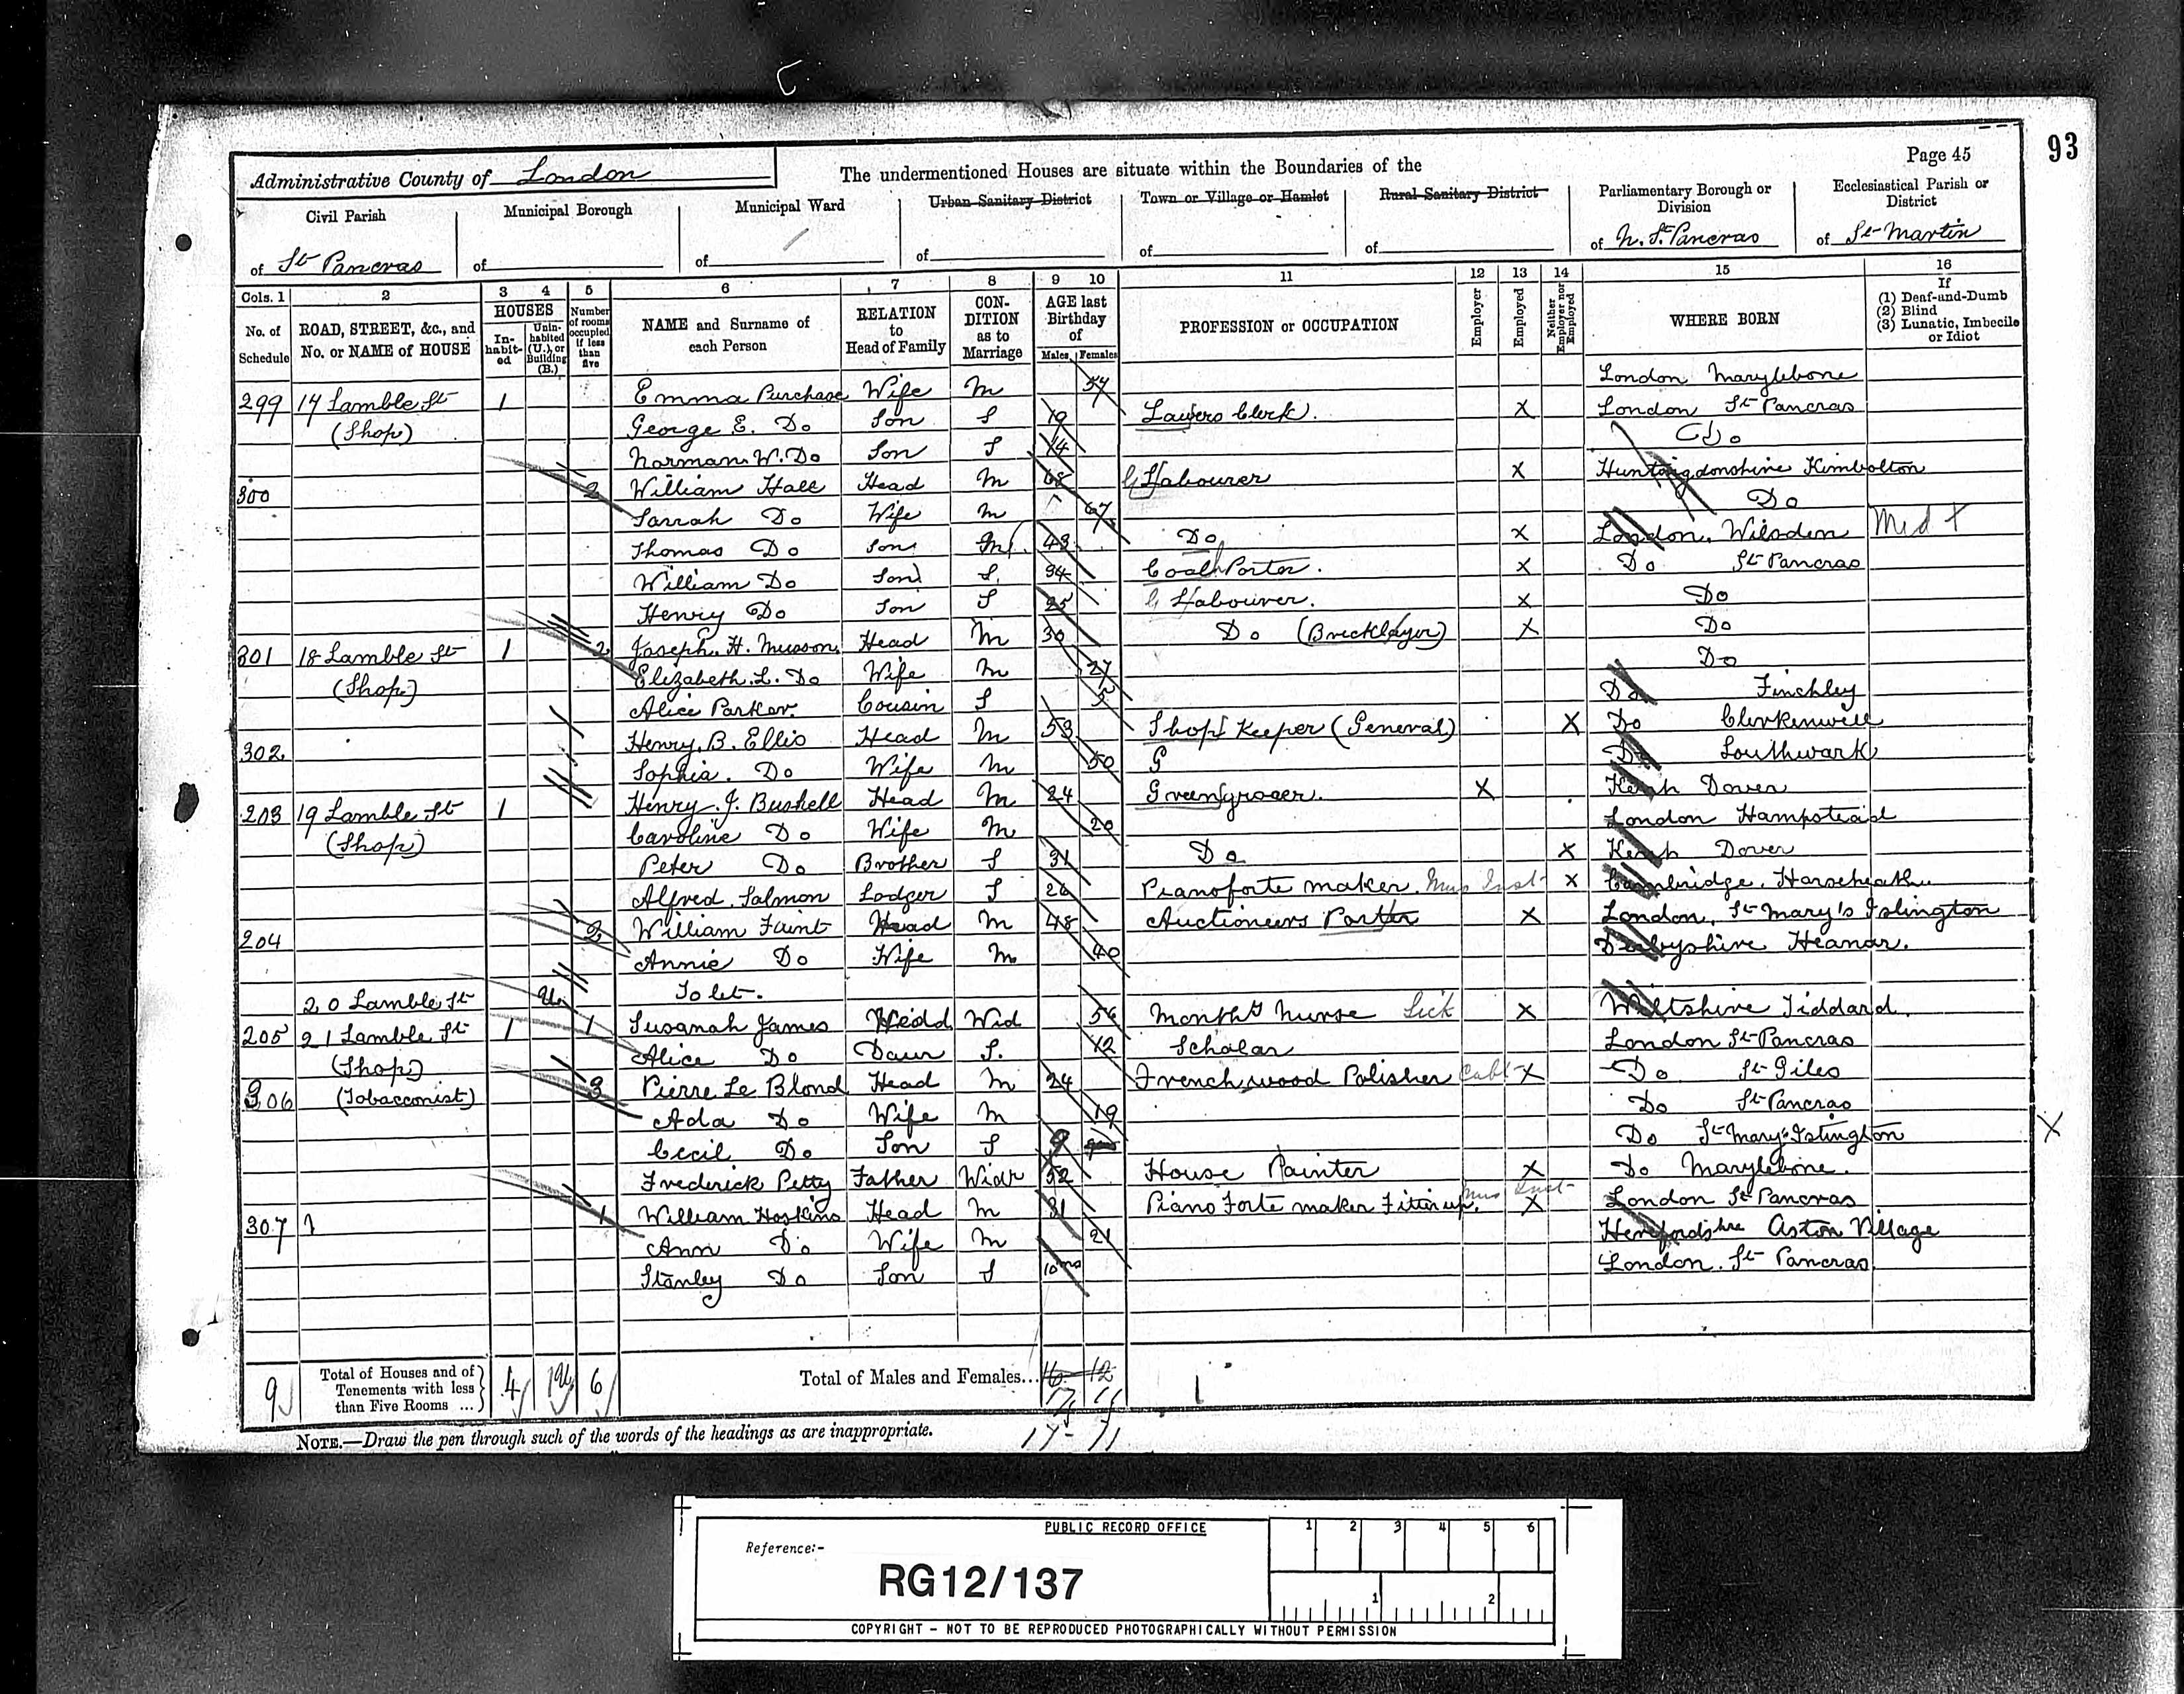 93
Page 45
Administrative County of London
The undermentioned Houses are situate within the Boundaries of the
Civil Parish
of St Pancras
Municipal Borough
of
Municipal Ward
of
Urban Sanitary District
of
Town or Village or Hamlet
of
Rural Sanitary District
of
Parliamentary Borough or Division
of N. St Pancras
Ecclesiastical Parish or District
of St Martin
Cols. 1 2 3 4 5 6 7 8 9 10 11 12 13 14 15 16
No. of Schedule
ROAD, STREET, &c., and No. or NAME of HOUSE
HOUSES
In-habit-ed
Unin-habited (U.), or Building (B.)
Number of rooms occupied if less than five
NAME and Surname of each Person
RELATION to Head of Family
CON-DITION as to Marriage
AGE last Birthday of
Males Females
PROFESSION or OCCUPATION
Employer
Employed
Neither Employer nor Employed
WHERE BORN
If
(1) Deaf-and-Dumb
(2) Blind
(3) Lunatic, Imbecile or Idiot
299 17 Lamble St 1 Emma Purchase Wife M 57 London Marylebone
(Shop) George E. Do Son S 19 Lawyers Clerk. X London St Pancras
Norman W. Do Son S 14 Do
300 2 William Hall Head M 68 G Labourer X Huntingdonshire Kimbolton
Sarrah Do Wife M 67 Do
Thomas Do Son M 43 Do X London Wilsden
William Do Son S. 34 Coal Porter. X Do St Pancras
Henry Do Son S 25 G Labourer. X Do
301 18 Lamble St 1 2 Joseph. H. Musson Head M 30 Do (Bricklayer) X Do
(Shop) Elizabeth. L. Do Wife M 27 Do
Alice Parker. Cousin S 5 Do Finchley
302 Henry. B. Ellis Head M 53 Shop Keeper (General) X Do Clerkenwell
Sophia. Do Wife M 50 G Do Southwark
203 19 Lamble St 1 Henry. J. Bushell Head M 24 Greengrocer. X Kent Dover
(Shop) Caroline Do Wife M 20 London Hampstead
Peter Do Brother S 31 Do X Kent Dover
Alfred. Salmon Lodger S 26 Pianoforte maker. Mus Inst X Cambridge. Horseheath
204 2 William Faint Head M 48 Auctioneers Porter X London, St Mary's Islington
Annie Do Wife M 40 Derbyshire Heanor.
20 Lamble St U To let.
205 21 Lamble St 1 1 Susanah James Head Wid 56 Monthly Nurse Sick X Wiltshire Liddard.
(Shop) Alice Do Daur S. 12 Scholar London St Pancras
306 (Tobacconist) 3 Pierre Le Blond Head M 24 French wood Polisher Cabt X Do St Giles
Ada Do Wife M 19 Do St Pancras
Cecil Do Son S 9 Do St Mary's Islington X
Frederick Petty Father Widr 52 House Painter X Do Marylebone.
307 1 William Hoskins Head M 31 Piano Forte maker Fitter up. Mus Inst X London St Pancras
Ann Do Wife M 21 Herefordshire Aston Village
Stanley Do Son S 10mo London. St Pancras
9 Total of Houses and of Tenements with less than Five Rooms ... 4 1U 6
Total of Males and Females... 16 12
17 11
17 - 11
NOTE.—Draw the pen through such of the words of the headings as are inappropriate.
PUBLIC RECORD OFFICE
Reference:-
RG12/137
1 2 3 4 5 6
1 2
COPYRIGHT - NOT TO BE REPRODUCED PHOTOGRAPHICALLY WITHOUT PERMISSION